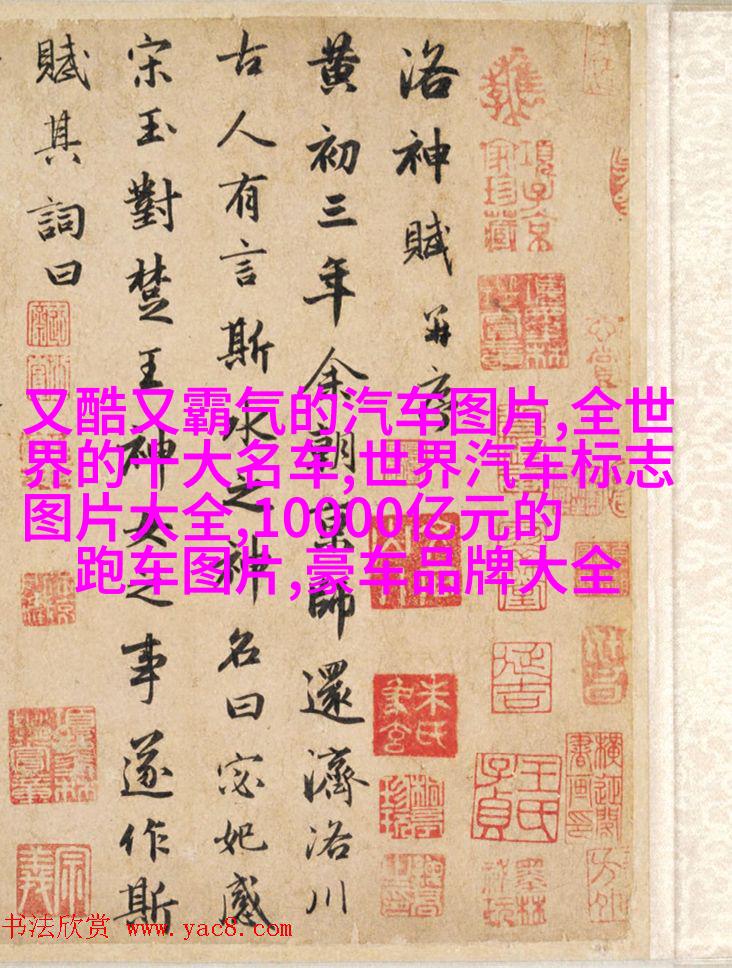 洛神賦并序
黄初三年余朝京師還濟洛川
古人有言斯水之神名曰宓妃感
宋玉對楚王神女之事遂作斯
賦其詞曰
又酷又霸气的汽车图片,全世
界的十大名车,世界汽车标志
图片大全,10000亿元的
跑车图片,豪车品牌大全
項子京家珍藏
墨林秘玩
书法欣赏 www.yac8.com